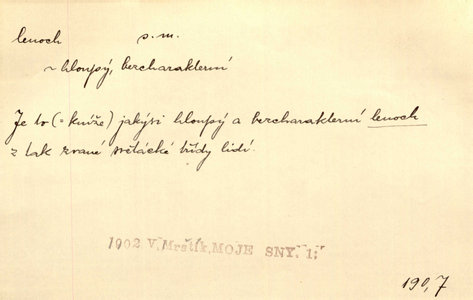 lenoch s. m.
~ hloupý, bezcharakterní
Je to (= kníže) jakýsi hloupý a bezcharakterní lenoch
z tak zvané světácké třídy lidí.
1902 V. Mrštík, MOJE SNY. 1:
190,7